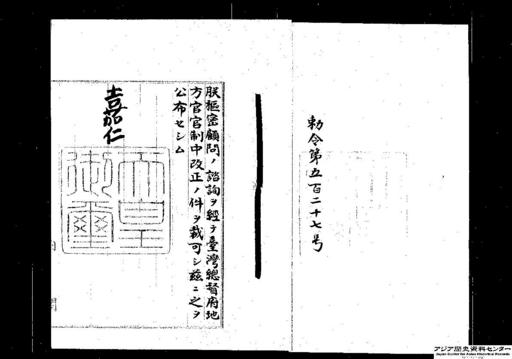 勅令第五百二十七号
朕樞密顧問ノ諮詢ヲ經テ臺灣總督府地
方官官制中改正ノ件ヲ裁可シ茲ニ之ヲ
公布セシム
嘉仁
天皇
御璽
アジア歴史資料センター
Japan Center for Asian Historical Records